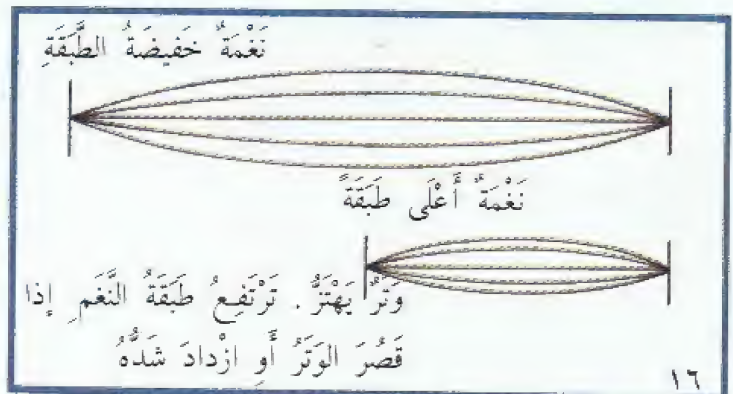 نَغْمَةٌ خَفِيضَةُ الطَّبَقَةِ
نَغْمَةٌ أَعْلَى طَبَقَةً
وَتَرٌ يَهْتَزُّ. تَرْتَفِعُ طَبَقَةُ النَّغَمِ إذا
قَصُرَ الوَتَرُ أَوِ ازْدادَ شَدُّهُ
١٦